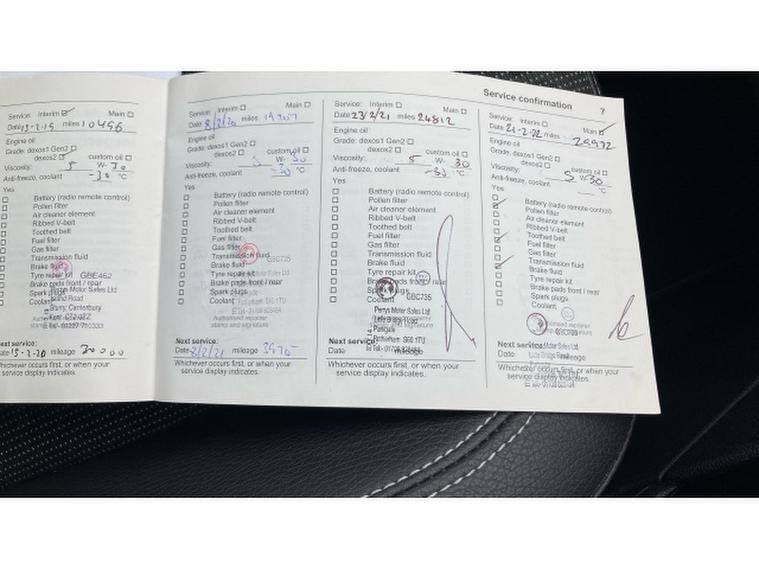 Service confirmation 7
Service: Interim ☑ Main ☐
Date 15-2-19 miles 10496
Engine oil
Grade: dexos1 Gen2 ☐
dexos2 ☐ custom oil ☐
Viscosity: 5 W- 30
Anti-freeze, coolant -30 °C
Yes
☐ Battery (radio remote control)
☐ Pollen filter
☐ Air cleaner element
☐ Ribbed V-belt
☐ Toothed belt
☐ Fuel filter
☐ Gas filter
☐ Transmission fluid
☐ Brake fluid
☐ Tyre repair kit GBE462
☐ Brake pads front / rear
☐ Spark plugs
☐ Coolant
Motor Sales Ltd
Island Road
Sturry, Canterbury
Next service:
Date 15-2-20 mileage
Whichever occurs first, or when your
service display indicates.
Service: Interim ☐ Main ☐
Date 8/2/20 miles
Engine oil
Grade: dexos1 Gen2 ☐
dexos2 ☐ custom oil ☐
Viscosity: 5 W- 30
Anti-freeze, coolant -30 °C
Yes
☐ Battery (radio remote control)
☐ Pollen filter
☐ Air cleaner element
☐ Ribbed V-belt
☐ Toothed belt
☐ Fuel filter
☐ Gas filter
☐ Transmission fluid GBC735
☐ Brake fluid
☐ Tyre repair kit
☐ Brake pads front / rear
☐ Spark plugs
☐ Coolant
Rotherham S60 1TU
Authorised repairer
stamp and signature
Next service:
Date 8/2/21 mileage
Whichever occurs first, or when your
service display indicates.
Service: Interim ☐ Main ☐
Date 23/2/21 miles 24812
Engine oil
Grade: dexos1 Gen2 ☐
dexos2 ☐ custom oil ☐
Viscosity: 5 W- 30
Anti-freeze, coolant -30 °C
Yes
☐ Battery (radio remote control)
☐ Pollen filter
☐ Air cleaner element
☐ Ribbed V-belt
☐ Toothed belt
☐ Fuel filter
☐ Gas filter
☐ Transmission fluid
☐ Brake fluid
☐ Tyre repair kit
☐ Brake pads front / rear
☐ Spark plugs GBC735
☐ Coolant
Perrys Motor Sales Ltd
Parkgate
Rotherham S60 1TU
Next service:
Date mileage
Whichever occurs first, or when your
service display indicates.
Service: Interim ☐ Main ☑
Date 21-2-22 miles
Engine oil
Grade: dexos1 Gen2 ☐
dexos2 ☐ custom oil ☐
Viscosity: 5 W- 30
Anti-freeze, coolant °C
Yes
☑ Battery (radio remote control)
☐ Pollen filter
☐ Air cleaner element
☐ Ribbed V-belt
☐ Toothed belt
☐ Fuel filter
☐ Gas filter
☐ Transmission fluid
☐ Brake fluid
☐ Tyre repair kit
☐ Brake pads front / rear
☐ Spark plugs
☐ Coolant
Next service:
Date mileage
Whichever occurs first, or when your
service display indicates.